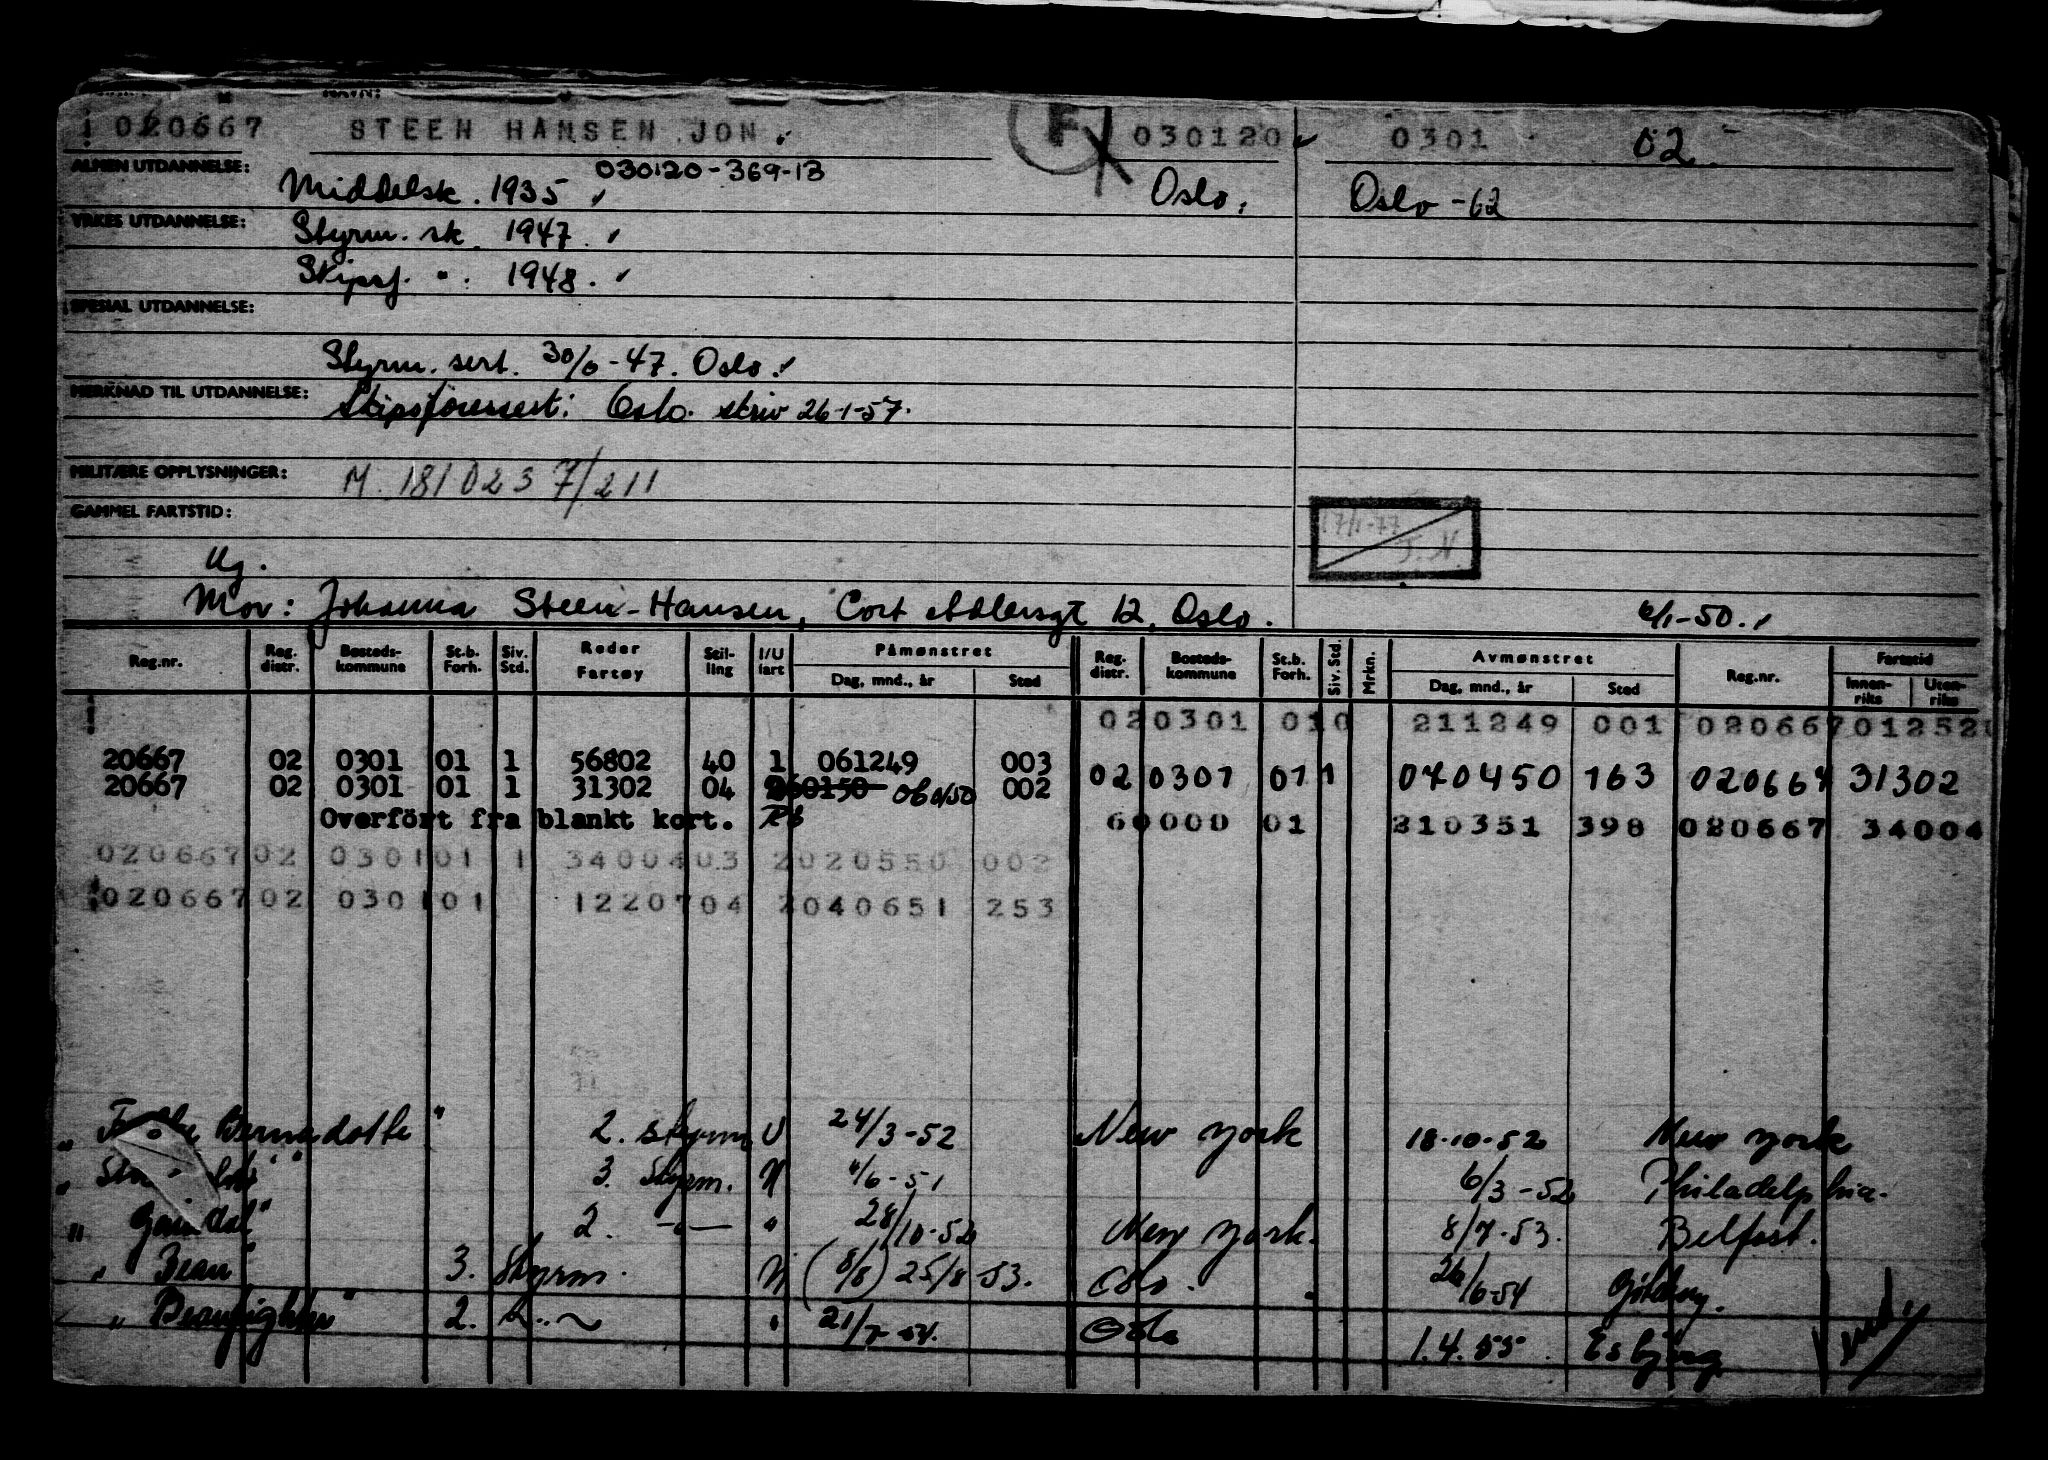 020667 STEEN HANSEN JON. F 030120 0301 02
ALMEN UTDANNELSE: Middelsk. 1935 030120-369-13 Oslo. Oslo -62
YRKES UTDANNELSE: Styrm. sk. 1947.
Skipsf. " . 1948.
SPESIAL UTDANNELSE:
Styrm. sert. 30/6-47. Oslo.
MERKNAD TIL UTDANNELSE: Skipsførersert: Oslo. skriv 26-1-57.
MILITÆRE OPPLYSNINGER: M. 181023 7/211
GAMMEL FARTSTID: 17/1-77
Ug. T.N.
Mor: Johanna Steen-Hansen, Cort Adlersgt 12, Oslo. 6/1-50.
Reg.nr. Reg. distr. Bosteds-kommune St.b. Forh. Siv. Std. Reder Fartøy Stil-ling I/U fart Påmønstret Dag, mnd., år Sted Reg. distr. Bosteds-kommune St.b. Forh. Siv. Std. Mrkn. Avmønstret Dag, mnd., år Sted Reg.nr. Fartstid Innen-riks Uten-riks
020301 010 211249 001 020667 012520
20667 02 0301 01 1 56802 40 1 061249 003
20667 02 0301 01 1 31302 04 060150 002 02 0301 01 1 040450 163 020667 31302
Overført fra blankt kort. 60000 01 210351 398 020667 34004
020667 02 0301 01 1 34004 03 2 020550 002
020667 02 0301 01 12207 04 2 040651 253
" Bernadotte " 2. styrm U 24/3-52 New York 18-10-52 New York
3. Styrm. U 4/6-51 6/3-52 Philadelphia.
" " 2. -"- " 28/10-52 New York. 8/7-53. Belfast.
" Bean " 3. Styrm. U (8/8) 25/8-53. Oslo. 26/6-54 Göteborg.
" " 2. " 21/7-54. Oslo 1.4.55. Esbjerg